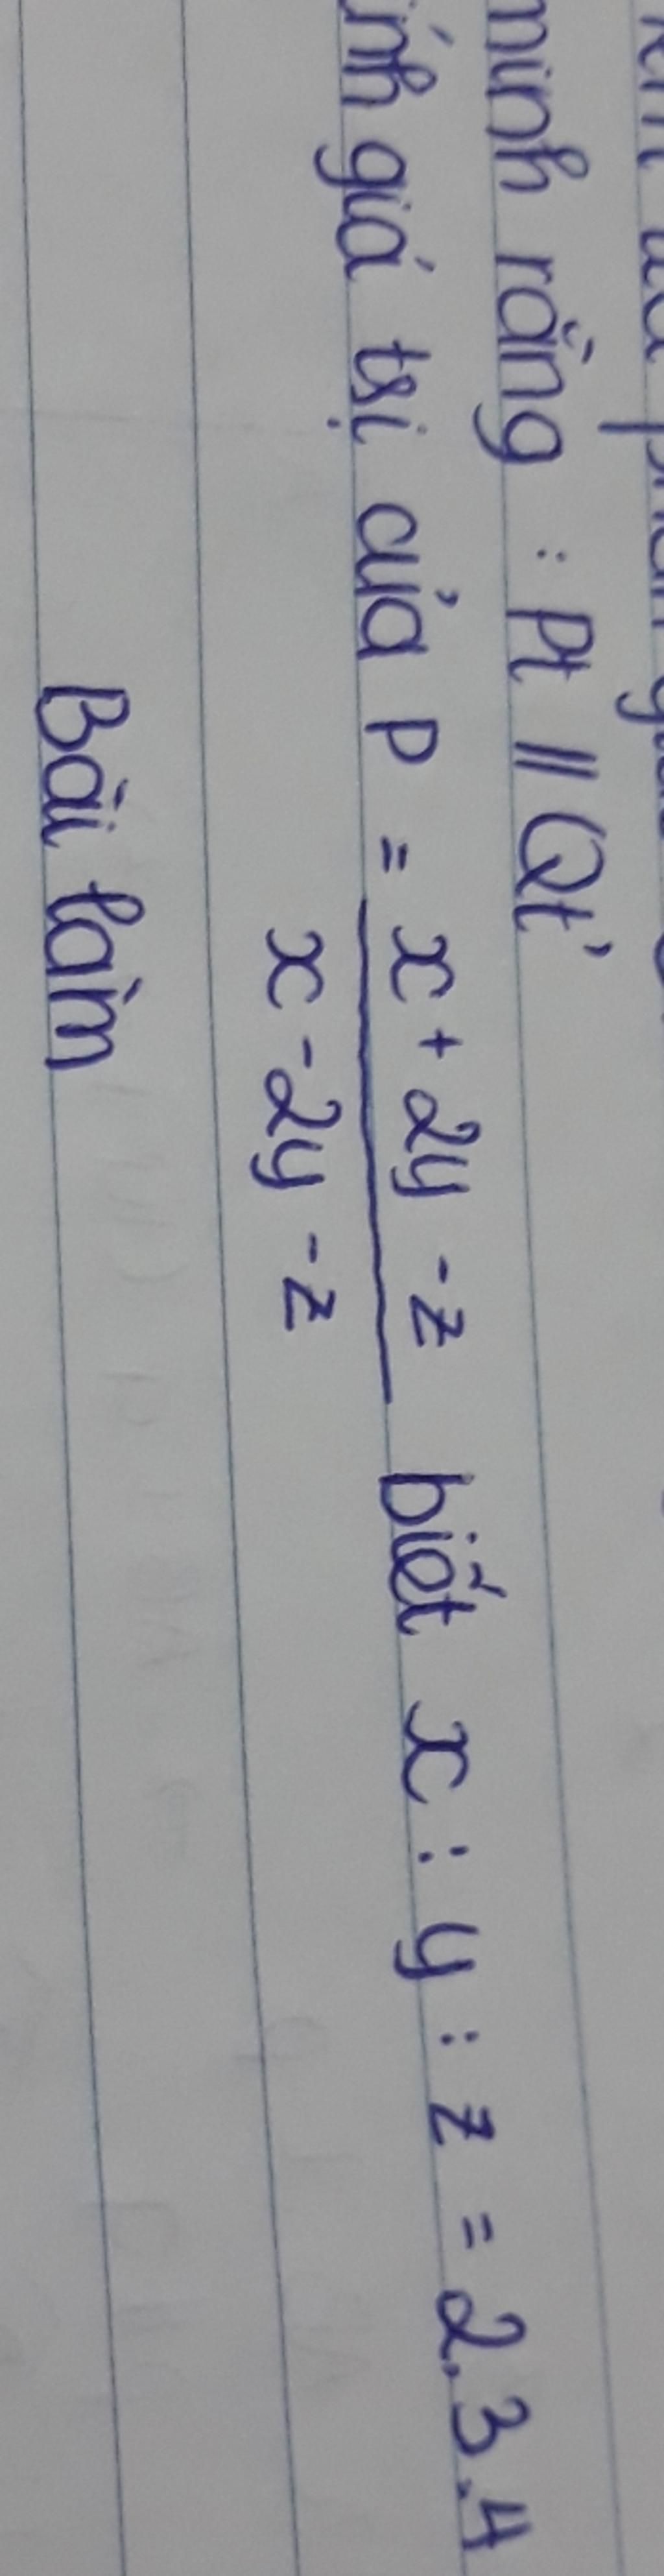 minh rằng : Pt // Qt'
ính giá trị của P = x + 2y - z / x - 2y - z biết x : y : z = 2.3.4
Bài làm